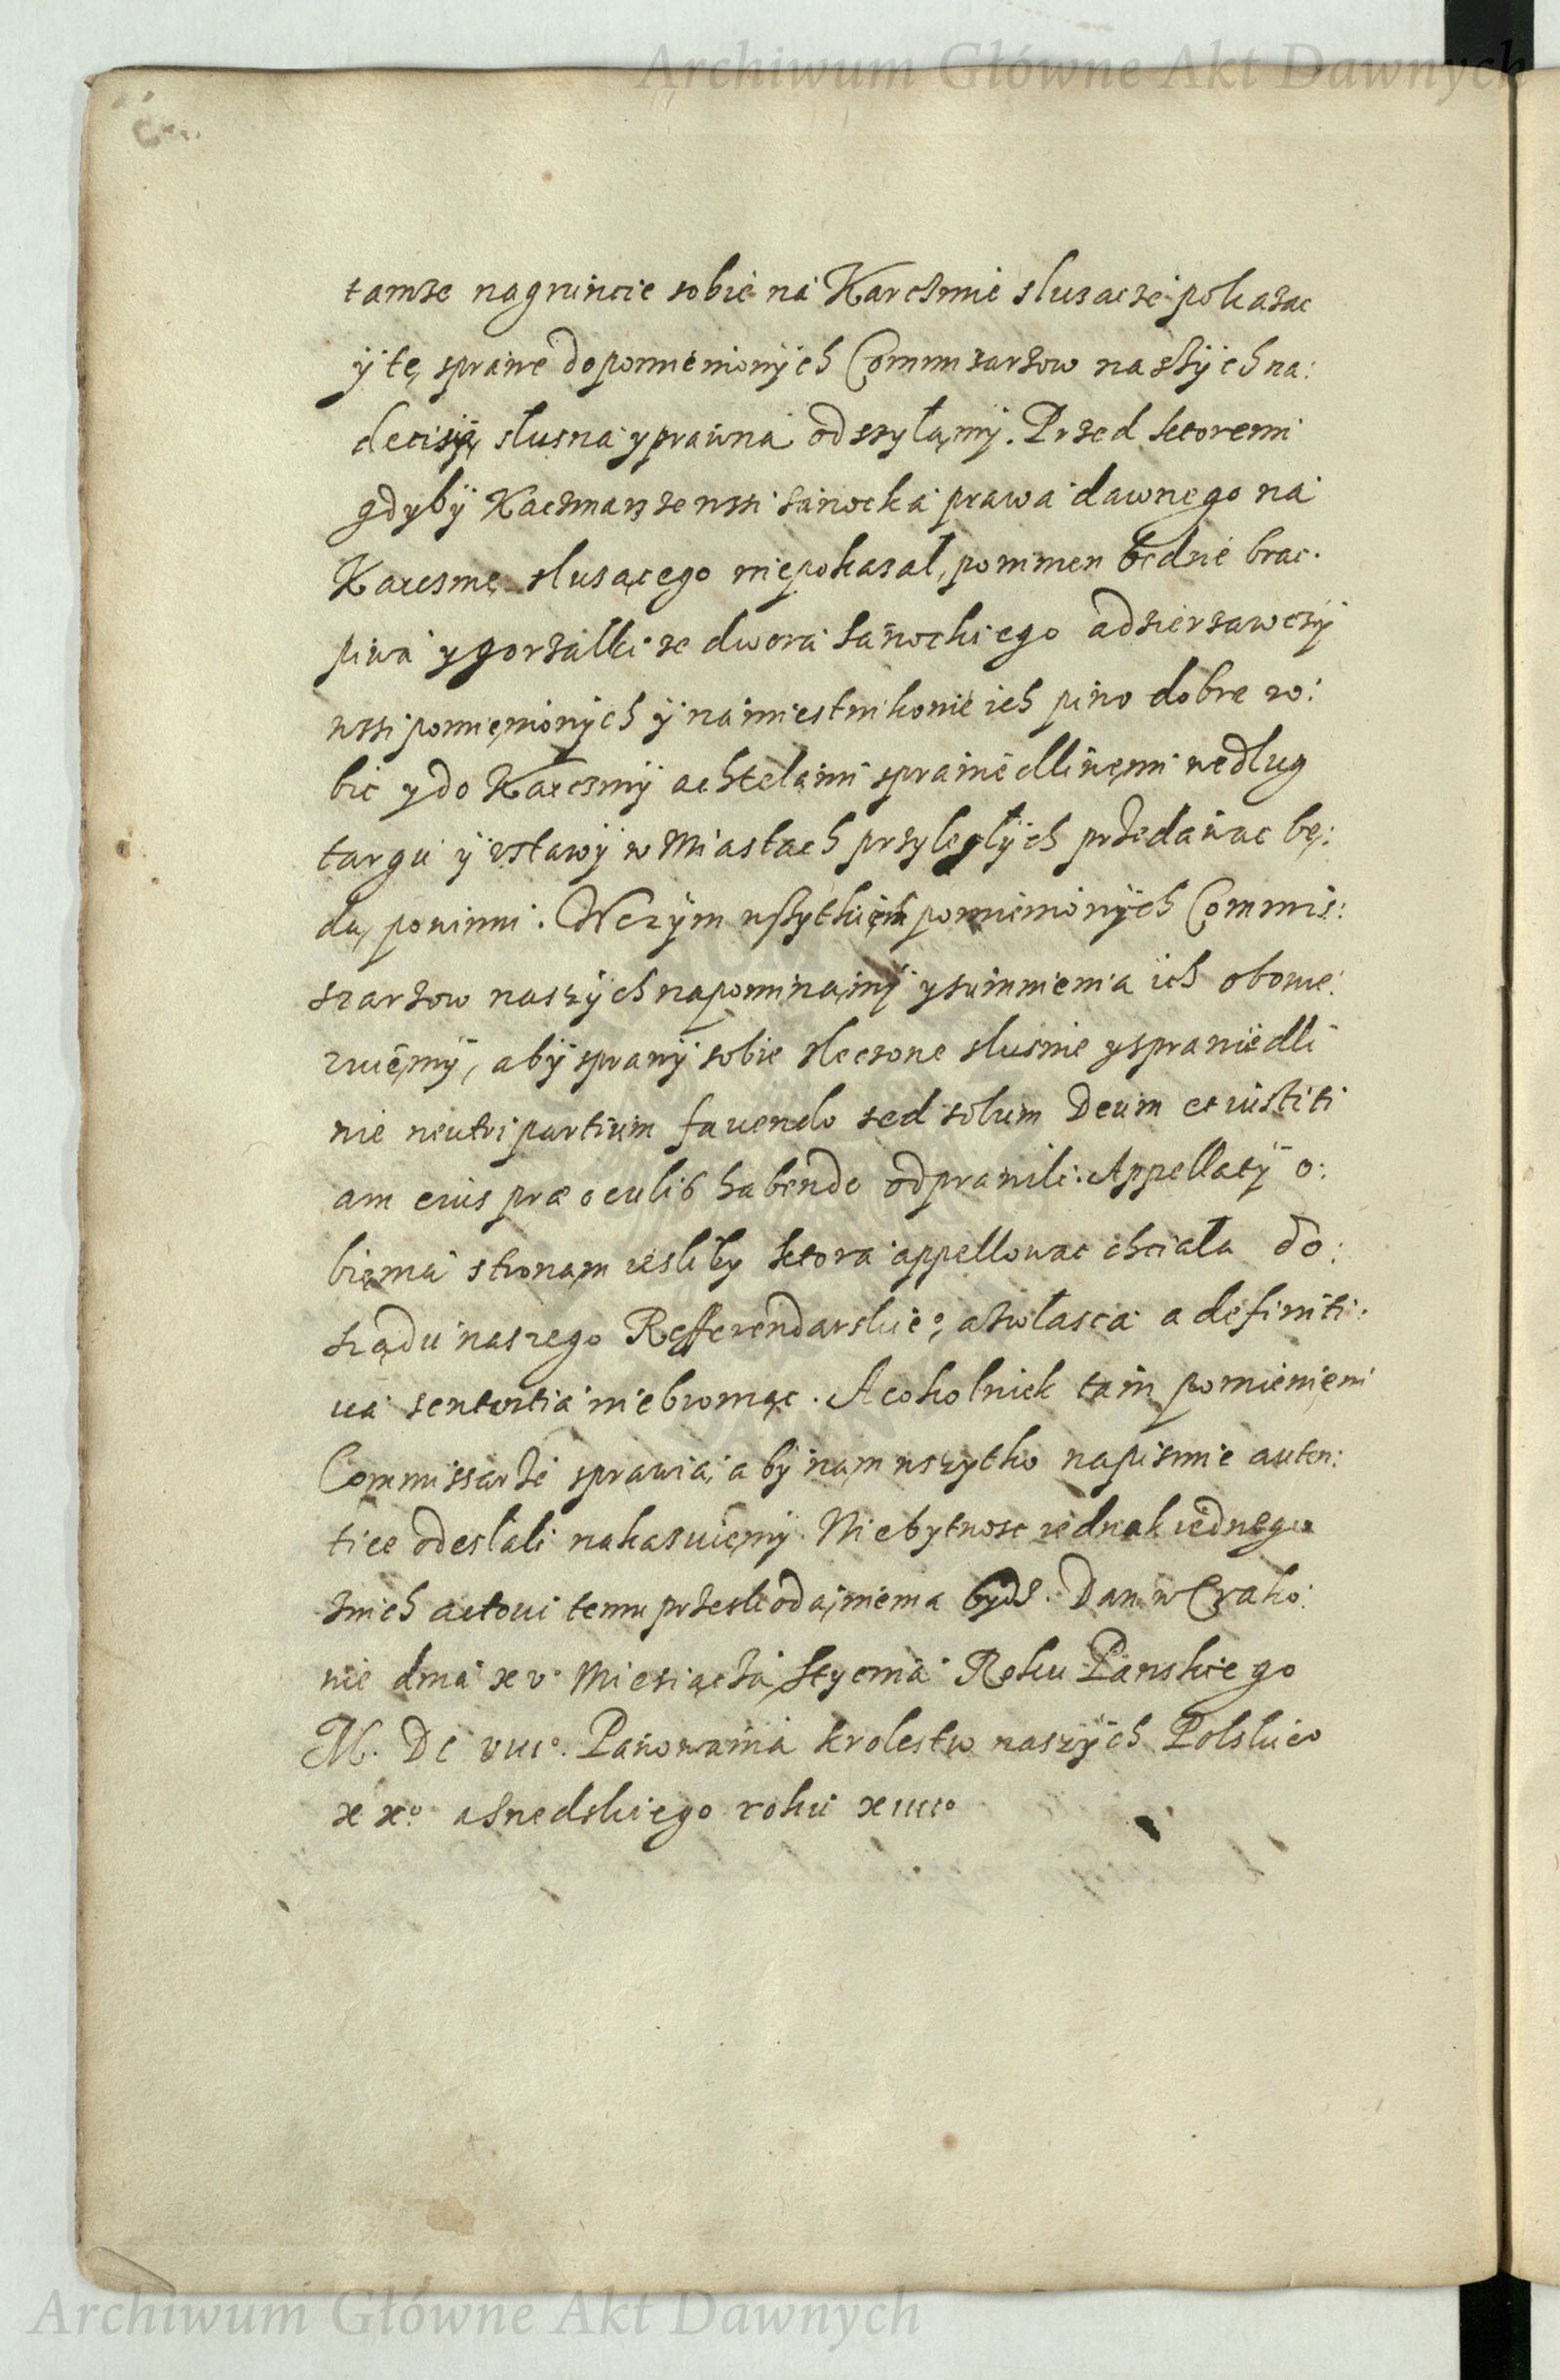 Archiwum Główne Akt Dawnych
tamze nagruncie sobie na Karczmie sluzacze pokazac
ÿ tę sprawe dopomienionÿch Commisarzow naszÿch na:
decisÿą slusna ÿ prawna odszyłamÿ. Przed ktoremi
gdybÿ Kaczmarz ze wssi Sanocka prawa dawnego na
Karczmę slusącego niepokazal, powinien bedzie brac
piwa y gorzalki ze dwora Sanockiego a dzierzawczÿ
wssi pomienionÿch ÿ namiestnikowie ich piwo dobre ro:
bic y do Karczmÿ achtelami sprawiedliwemi wedlug
targu ÿ vstawÿ w Miastach przyleglÿch przedawac bę:
dą powinni. W czÿm wszytkich pomienionÿch Commis:
szarzow naszÿch napominamÿ y sumnienia ich obowie:
zuiemÿ, abÿ sprawÿ sobie zleczone slusnie y sprawiedli
wie neutri partium favendo sed solum Deum et iustiti
am eius præ oculis habendo odprawili. Appellatÿ o:
biema stronam iesliby ktora appellowac chciała do:
sządu naszego Refferendarskie°, a zwłasca a definiti:
va sententia niebroniąc. A cokolwiek tam pomienieni
Commissarze sprawią, abÿ nam wszytko napismie auten:
tice odeslali nakazuiemÿ. Niebytnosc iednak iednego
znich actovi temu przeskodą niema bydz. Dan w Crako:
wie dnia xv° Miesiącza Stycznia Roku Panskiego
M. DC viii°. Panowania krolestw naszÿch Polskie°
xx° a Szwedskiego roku xiiii°
Archiwum Główne Akt Dawnych